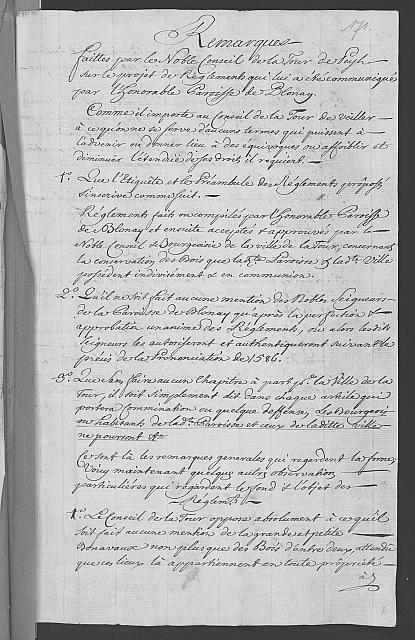 171.
Remarques
faittes par le Noble Conseil de la Tour de Peylz
sur le projet de Réglements qui lui a été communiqué
par l'Honorable Paroisse de Blonay.
Comme il importe au Conseil de la Tour de veiller
à ce qu'on ne se serve d'aucuns termes qui puissent à
l'advenir donner lieu à des équivoques ou affoiblir et
diminuer l'étendüe de ses droits, il requiert.
1°. Que l'Etiquête et le Préambule des Réglements proposés
s'inscrive comme suit.
Réglements faits ou compilés par l'Honorable Paroisse
de Blonay et ensuite acceptés & approuvés par le
Noble Conseil & Bourgeoisie de la ville de la Tour, concernant
la conservation des Bois que la dte. Paroisse & la dte. Ville
possèdent indivisément & en commun.
2°. Qu'il ne soit fait aucune mention des Nobles Seigneurs
de la Paroisse de Blonay qu'après la perfection &
approbation unanime des Réglements, ou alors les dits
Seigneurs les autoriseront et authentiqueront suivant le
précis de la Prononciation de 1586.
3°. Que sans faire aucun Chapitre à part pr. la Ville de la
Tour, il soit simplement dit dans chaque article qui
portera Commination ou quelque deffense, Les Bourgeois
ou habitants de la de. Paroisse et ceux de la dite Ville
ne pourront &c.
Ce sont là les remarques generales qui regardent la forme,
Voicy maintenant quelques autres observations
particulières qui regardent le fond & l'objet des
Réglemts.
1°. Le Conseil de la Tour oppose absolument à ce qu'il
soit fait aucune mention de la grande et petite
Bonavaux non plus que des Bois d'entre deux, attendu
que ces lieux là appartiennent en toute propriété
à